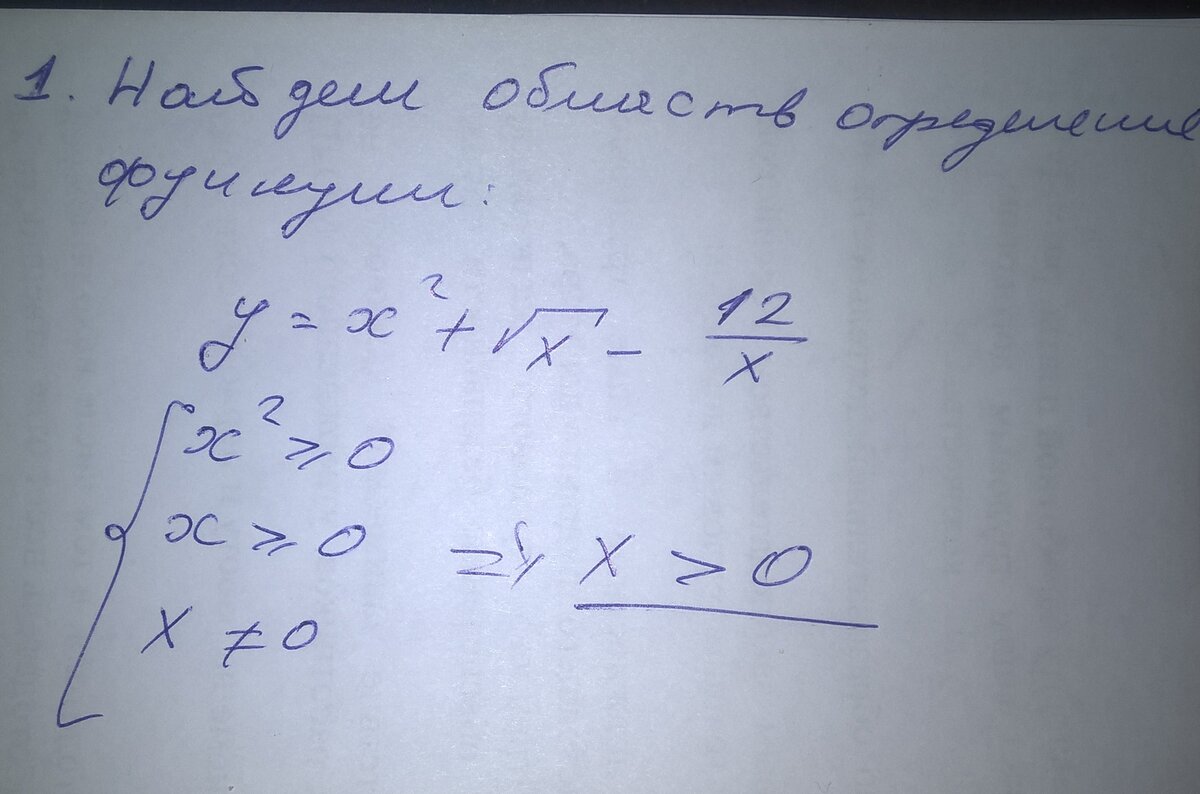 1. Найдем область определение
функции:
y = x² + √x - 12/x
{ x² ≥ 0
x ≥ 0 => x > 0
x ≠ 0